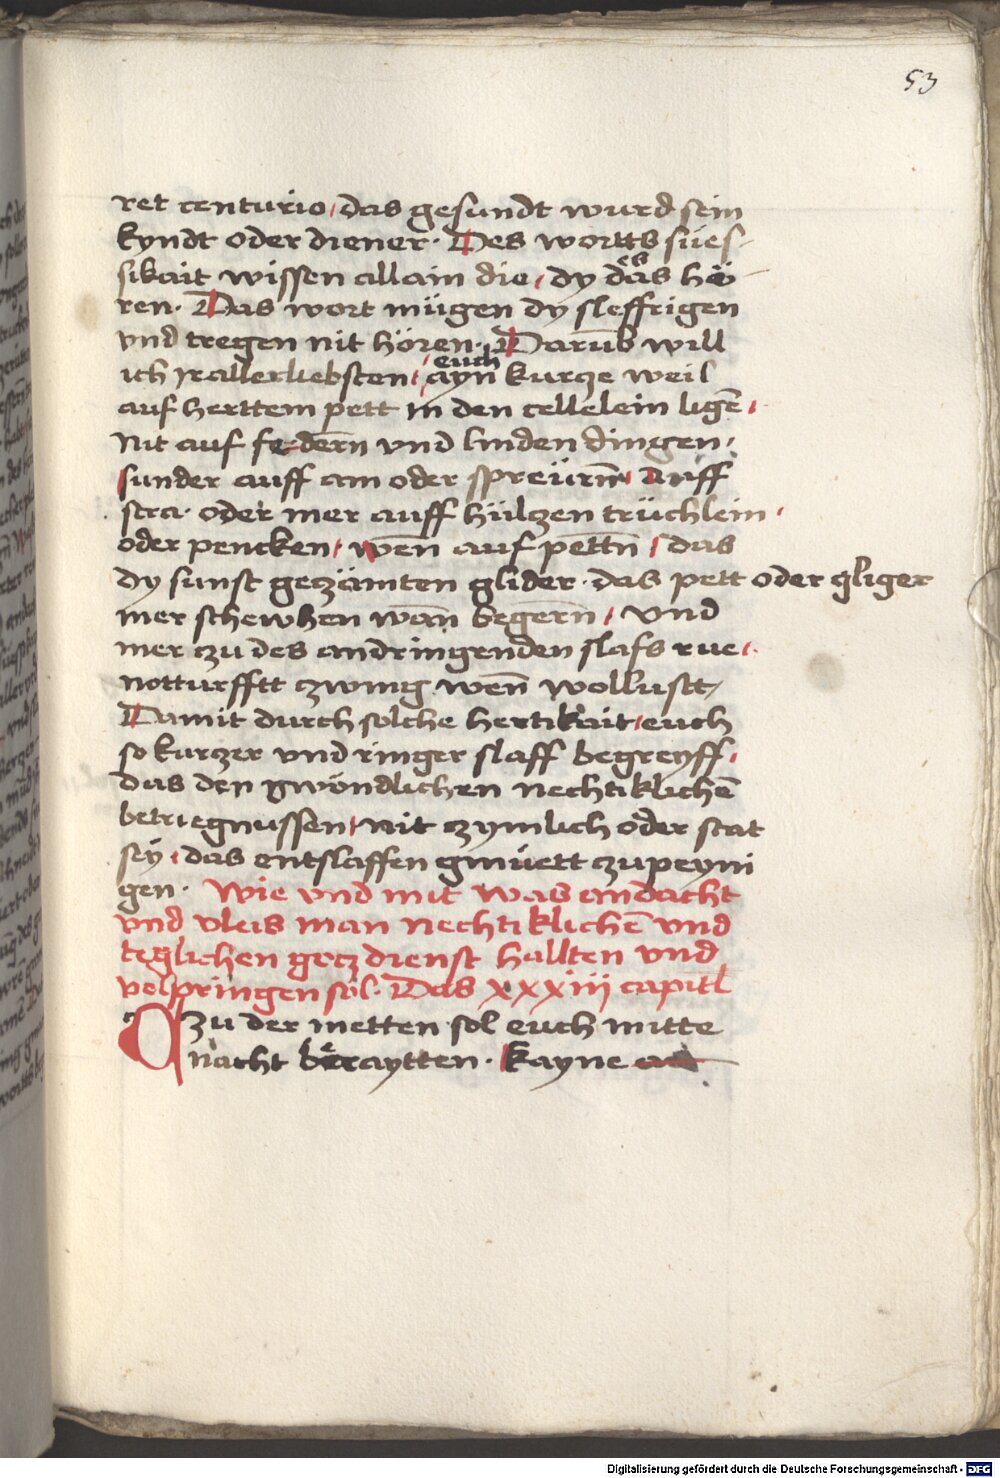 53
ret centurio, das gesundt wurd sein
kyndt oder diener. Des wortts sües-
sikait wissen allain die, dy das es hö-
ren. Das wort mügen dy sleffrigen
vnd tregen nit hören. Darūb will
ich yr allerliebsten, euch ayn kurcze weil
auf herttem pett in den cellelein ligē,
Nit auf federn vnd linden dingen,
sunder auff am oder spreürn̄, Auff
stra. oder mer auff hülczen trüchlein,
oder pencken, wen̄ auf pettn̄, das
dy sunst geczämten glider. das pett oder gliger
mer schewhen wan̄ begern̄, vnd
mer zu des andringenden slafs rue,
notturfftt zwing wen̄ wollustt,
Damit durch solche hertikait, euch
so kurczer vnd ringer slaff begreyff,
das den gwöndlichen nechtiklichē
betriegnussen, nit zymlich oder stat
sey, das entslaffen gmüett zu peyni
gen. Wie vnd mit was andacht
vnd vleis man nechtiklichē vnd
teglichen gocz dienst hallten vnd
volpringen sol. Das xxxiiij capitl̄
zu der metten sol euch mitte
nacht beraytten. Kayne
Digitalisierung gefördert durch die Deutsche Forschungsgemeinschaft - DFG